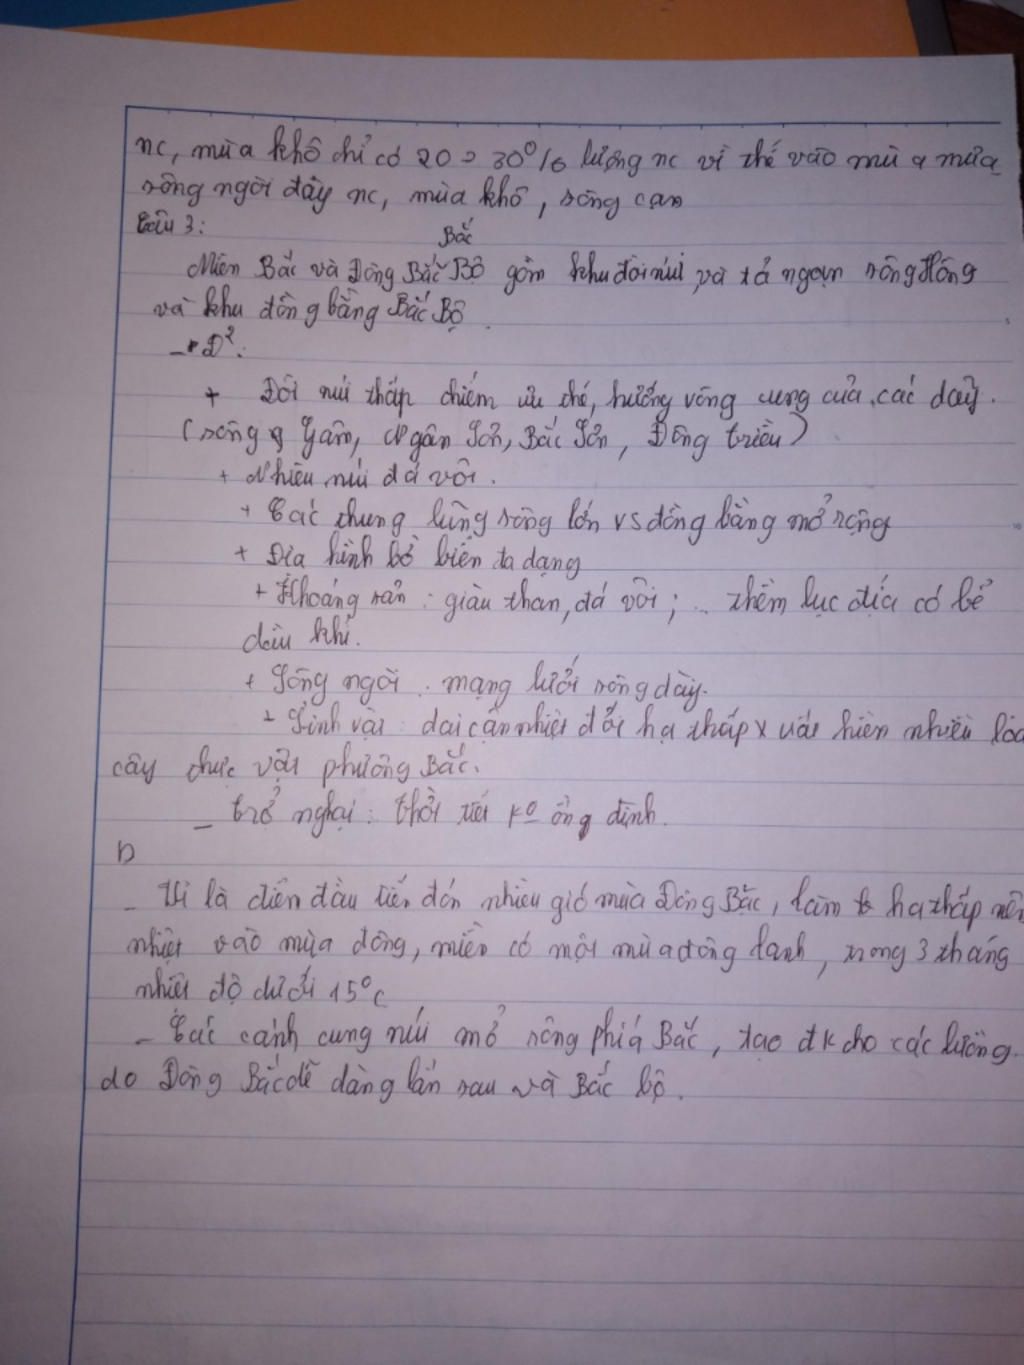 nc, mùa khô chỉ có 20 -> 30% lượng nc vì thế vào mùa mưa
sông ngòi đầy nc, mùa khô, sông cạn
Câu 3:
Bắc
Miền Bắc và Đông Bắc Bộ gồm khu đồi núi và tả ngạn sông Hồng
và khu đồng bằng Bắc Bộ.
- Đ²:
+ Đồi núi thấp chiếm ưu thế, hướng vòng cung của các dãy.
(sông Gâm, Ngân Sơn, Bắc Sơn, Đông triều)
+ Nhiều núi đá vôi.
+ Các thung lũng sông lớn vs đồng bằng mở rộng
+ Địa hình bờ biển đa dạng
+ Khoáng sản: giàu than, đá vôi; ... thềm lục địa có bể
dầu khí.
+ Sông ngòi: mạng lưới sông dày.
+ Sinh vật: đai cận nhiệt đới hạ thấp xuất hiện nhiều loà
cây thực vật phương Bắc.
- trở ngại: thời tiết ko ổn định.
b
- Vì là diễn đầu tiên đón nhiều gió mùa Đông Bắc, làm hạ thấp nền
nhiệt vào mùa đông, miền có một mùa đông lạnh, trong 3 tháng
nhiệt độ dưới 15°C
- Các cánh cung núi mở rông phía Bắc, tạo đk cho các luồng
do Đông Bắc dễ dàng lấn sau và Bắc bộ.